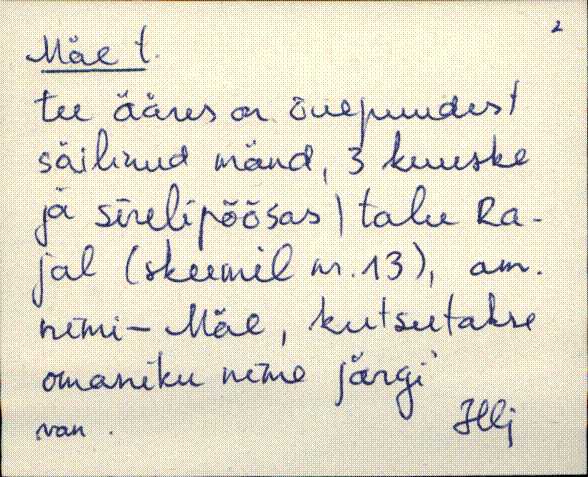 2
Mäe t.
tee ääres on õuepuudest
säilinud mänd, 3 kuuske
ja sirelipõõsas) talu Ra-
jal (skeemil nr. 13), am.
nimi - Mäe, kutsutakse
omaniku nime järgi
van.